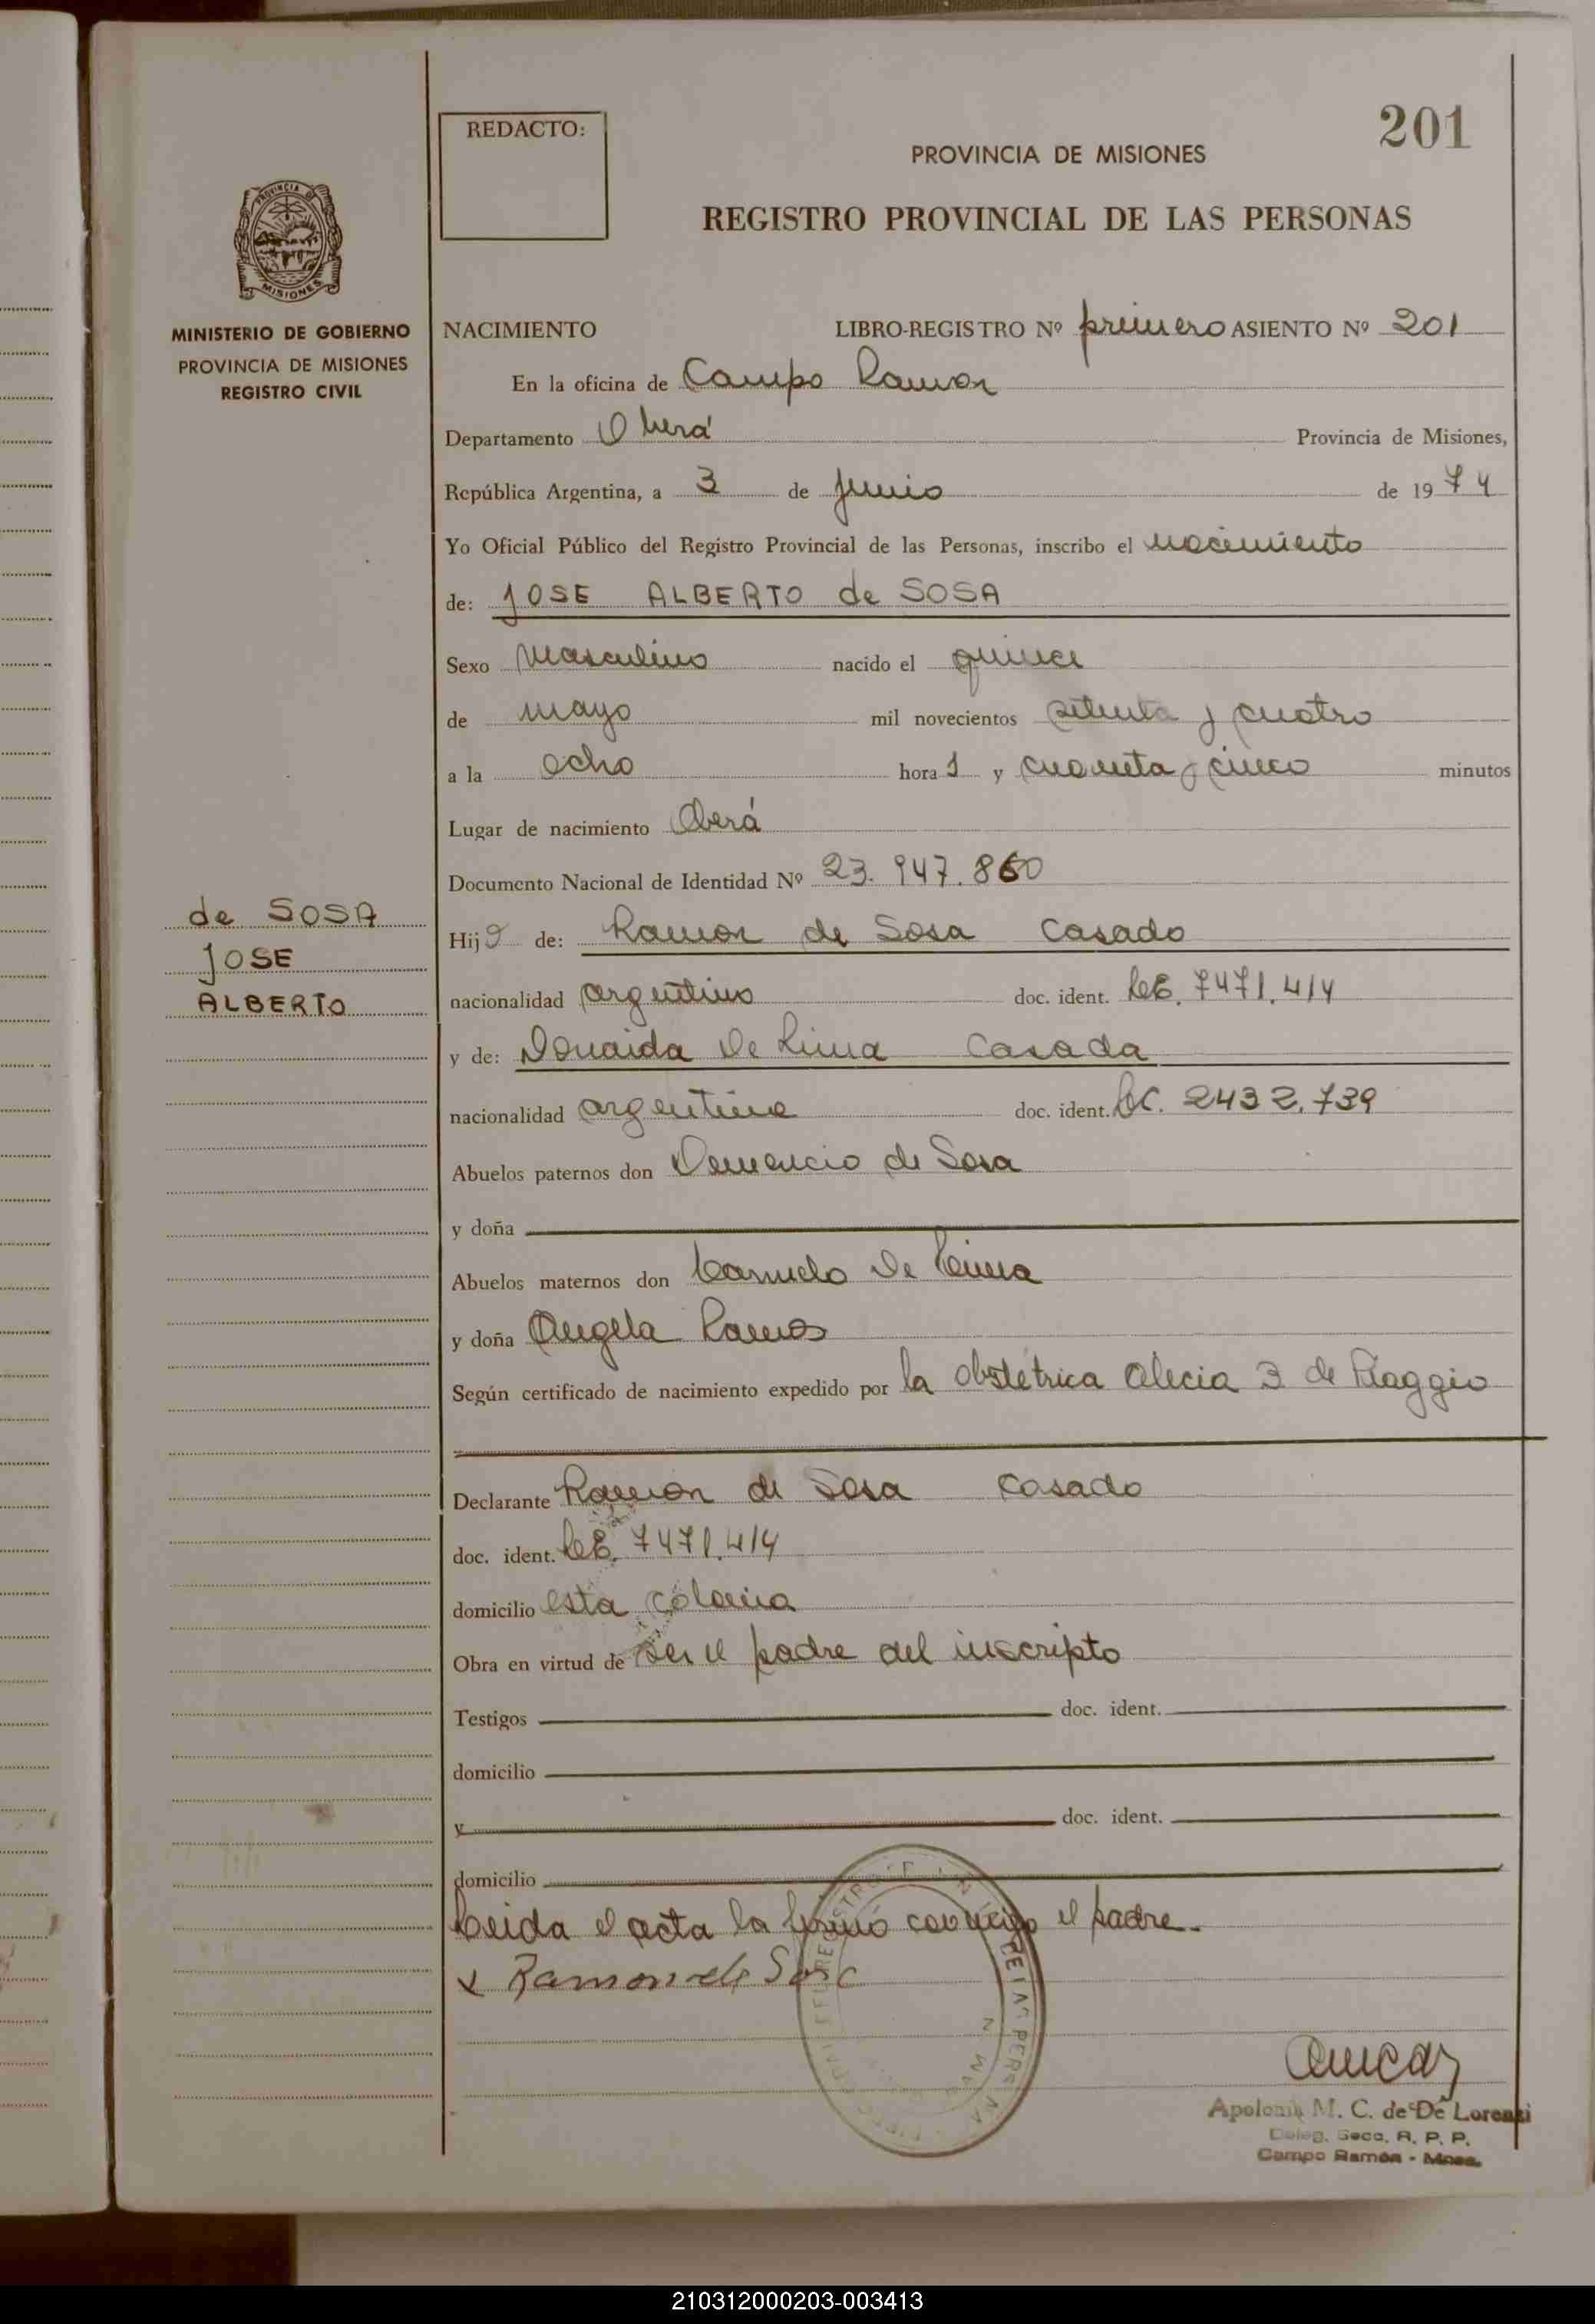 201
REDACTO:
PROVINCIA DE MISIONES
REGISTRO PROVINCIAL DE LAS PERSONAS
PROVINCIA DE
MISIONES
MINISTERIO DE GOBIERNO
PROVINCIA DE MISIONES
REGISTRO CIVIL
NACIMIENTO LIBRO-REGISTRO Nº primero ASIENTO Nº 201
En la oficina de Campo Ramon
Departamento Oberá Provincia de Misiones,
República Argentina, a 3 de junio de 1974
Yo Oficial Público del Registro Provincial de las Personas, inscribo el nacimiento
de: JOSE ALBERTO de SOSA
Sexo Masculino nacido el quince
de mayo mil novecientos setenta y cuatro
a la ocho hora s y cuarenta y cinco minutos
Lugar de nacimiento Oberá
Documento Nacional de Identidad Nº 23.947.860
de SOSA
JOSE
ALBERTO
Hijo de: Ramon de Sosa Casado
nacionalidad argentino doc. ident. LE. 7471.414
y de: De Lima Casada
nacionalidad argentina doc. ident. LC. 2432.739
Abuelos paternos don de Sosa
y doña
Abuelos maternos don De Lima
y doña Angela Ramos
Según certificado de nacimiento expedido por la Obstetrica Alecia 3 de
Declarante Ramon de Sosa Casado
doc. ident. LE. 7471.414
domicilio esta colonia
Obra en virtud de ser el padre del inscripto
Testigos doc. ident.
domicilio
y doc. ident.
domicilio
Leida el acta la firmó conmigo el padre.
x Ramon de Sosa
Apolonia M. C. de De Lorenzi
Deleg. Secc. R. P. P.
Campo Ramón - Mnes.
210312000203-003413